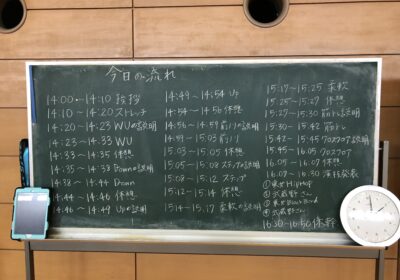 今日の流れ
14:00~14:10 挨拶
14:10~14:20 ストレッチ
14:20~14:23 WUの説明
14:23~14:33 WU
14:33~14:35 休憩
14:35~14:38 Downの説明
14:38~14:44 Down
14:44~14:46 休憩
14:46~14:49 Upの説明
14:49~14:54 Up
14:54~14:56 休憩
14:56~14:59 筋トレの説明
14:59~15:03 筋トレ
15:03~15:05 休憩
15:05~15:08 ステップの説明
15:08~15:12 ステップ
15:12~15:14 休憩
15:14~15:17 柔軟の説明
15:17~15:25 柔軟
15:25~15:27 休憩
15:27~15:30 筋トレ説明
15:30~15:42 筋トレ
15:42~15:45 クロスフロア説明
15:45~16:05 クロスフロア
16:05~16:09 休憩
16:09~16:30 演技発表
① 東大 HipHop
② 武蔵野さん
③ 東大
④ 武蔵野さん
16:30~16:50 体幹